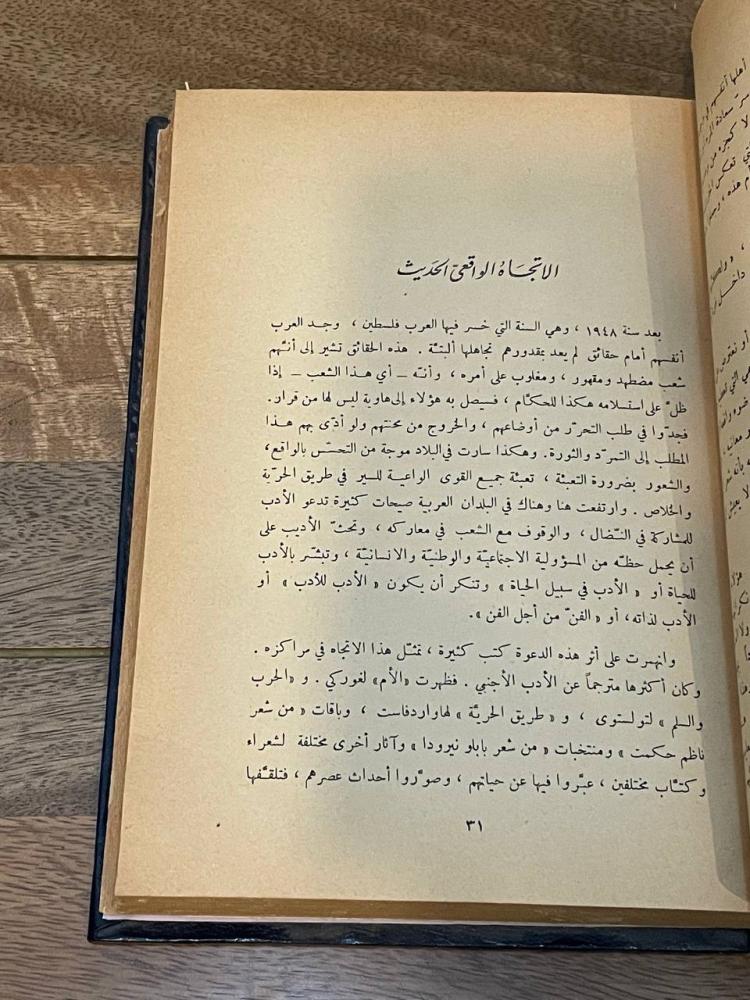 الاتجاهُ الواقعيّ الحديث
بعد سنة ١٩٤٨ ، وهي السنة التي خسر فيها العرب فلسطين ، وجد العرب
أنفسهم أمام حقائق لم يعد بمقدورهم تجاهلها ألبتة . هذه الحقائق تشير إلى أنهم
شعب مضطهد ومقهور ، ومغلوب على أمره ، وأنه – أي هذا الشعب – إذا
ظلّ على استسلامه هكذا للحكّام ، فسيصل به هؤلاء إلى هاوية ليس لها من قرار.
فجدّوا في طلب التحرّر من أوضاعهم ، والخروج من محنتهم ولو أدّى بهم هذا
المطلب إلى التمرّد والثورة. وهكذا سارت في البلاد موجة من التحسّس بالواقع،
والشعور بضرورة التعبئة ، تعبئة جميع القوى الواعية للسير في طريق الحرّية
والخلاص . وارتفعت هنا وهناك في البلدان العربية صيحات كثيرة تدعو الأدب
للمشاركة في النّضال ، والوقوف مع الشعب في معاركه ، وتحثّ الأديب على
أن يحمل حظّه من المسؤولية الاجتماعيّة والوطنيّة والانسانيّة ، وتبشّر بالأدب
للحياة أو « الأدب في سبيل الحياة » وتنكر أن يكون « الأدب للأدب » أو
الأدب لذاته، أو « الفنّ من أجل الفن ».
وانهمرت على أثر هذه الدعوة كتب كثيرة ، تمثّل هذا الاتجاه في مراكزه .
وكان أكثرها مترجماً عن الأدب الأجنبي . فظهرت «الأم» لغوركي . و «الحرب
والسلم » لتولستوى ، و « طريق الحريّة » لهاواردفاست ، وباقات « من شعر
ناظم حكمت » ومنتخبات « من شعر بابلو نيرودا » وآثار أخرى مختلفة لشعراء
وكتّاب مختلفين ، عبّروا فيها عن حياتهم ، وصوّروا أحداث عصرهم ، فتلقّفها
٣١